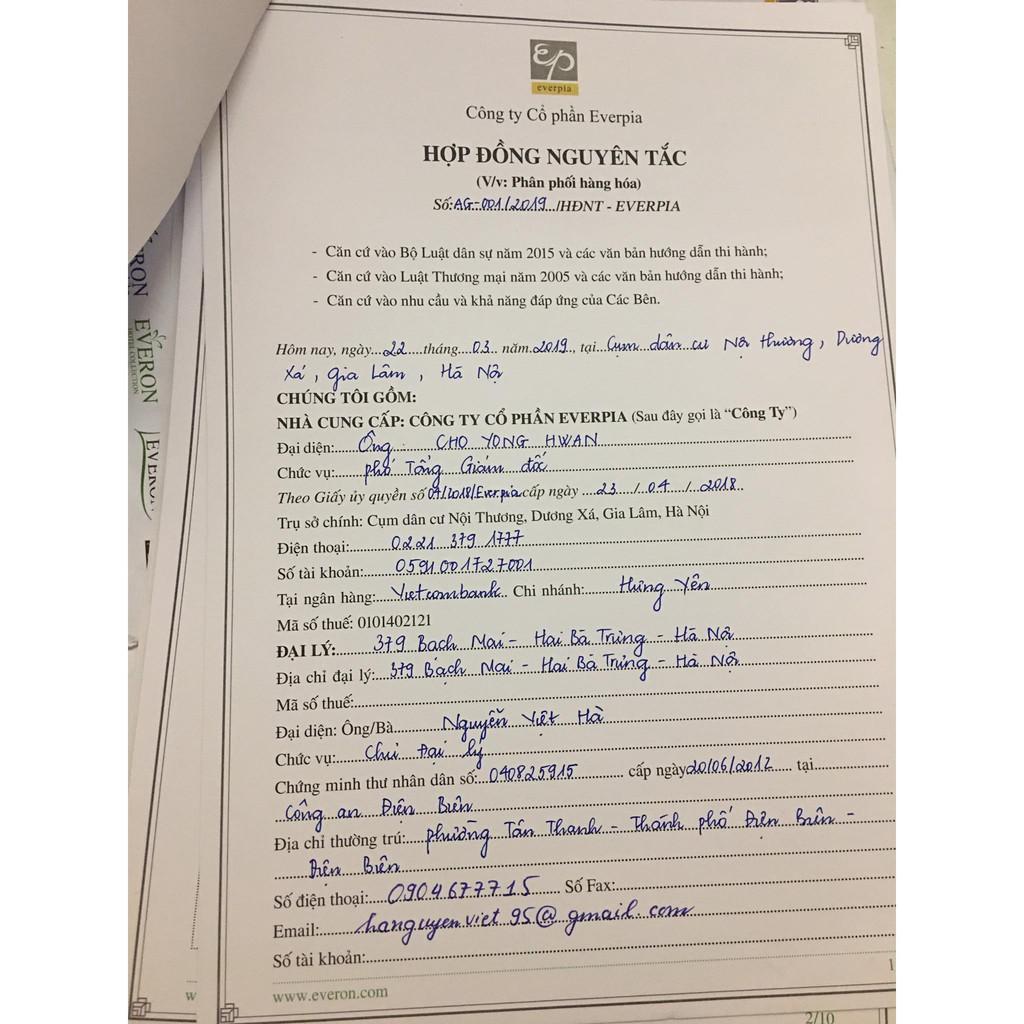 everpia
Công ty Cổ phần Everpia
HỢP ĐỒNG NGUYÊN TẮC
(V/v: Phân phối hàng hóa)
Số:AG-001/2019../HĐNT - EVERPIA
- Căn cứ vào Bộ Luật dân sự năm 2015 và các văn bản hướng dẫn thi hành;
- Căn cứ vào Luật Thương mại năm 2005 và các văn bản hướng dẫn thi hành;
- Căn cứ vào nhu cầu và khả năng đáp ứng của Các Bên.
Hôm nay, ngày...22....tháng...03.. năm.2019., tại...Cụm dân cư Nội thương, Dương
Xá, Gia Lâm, Hà Nội
CHÚNG TÔI GỒM:
NHÀ CUNG CẤP: CÔNG TY CỔ PHẦN EVERPIA (Sau đây gọi là “Công Ty”)
Đại diện:....Ông.... CHO YONG HWAN
Chức vụ:....phó Tổng Giám đốc
Theo Giấy ủy quyền số 04/2018/Everpia cấp ngày ...23.../04.../...2018..
Trụ sở chính: Cụm dân cư Nội Thương, Dương Xá, Gia Lâm, Hà Nội
Điện thoại:....0221 379 1777
Số tài khoản:....0591001727001
Tại ngân hàng:...Vietcombank.. Chi nhánh:....Hưng Yên
Mã số thuế: 0101402121
ĐẠI LÝ:....379 Bạch Mai - Hai Bà Trưng - Hà Nội
Địa chỉ đại lý:..379 Bạch Mai - Hai Bà Trưng - Hà Nội
Mã số thuế:
Đại diện: Ông/Bà....Nguyễn Việt Hà
Chức vụ:....Chủ Đại lý
Chứng minh thư nhân dân số:..040825915.... cấp ngày20/06/2012.... tại
Công an Điện Biên
Địa chỉ thường trú:...phường Tân Thanh - Thành phố Điện Biên -
Điện Biên
Số điện thoại:...0904677715.... Số Fax:
Email:....hanguyenviet95@gmail.com
Số tài khoản:
www.everon.com
1
2/10
w
EVERON
HOTEL COLLECTION
RON